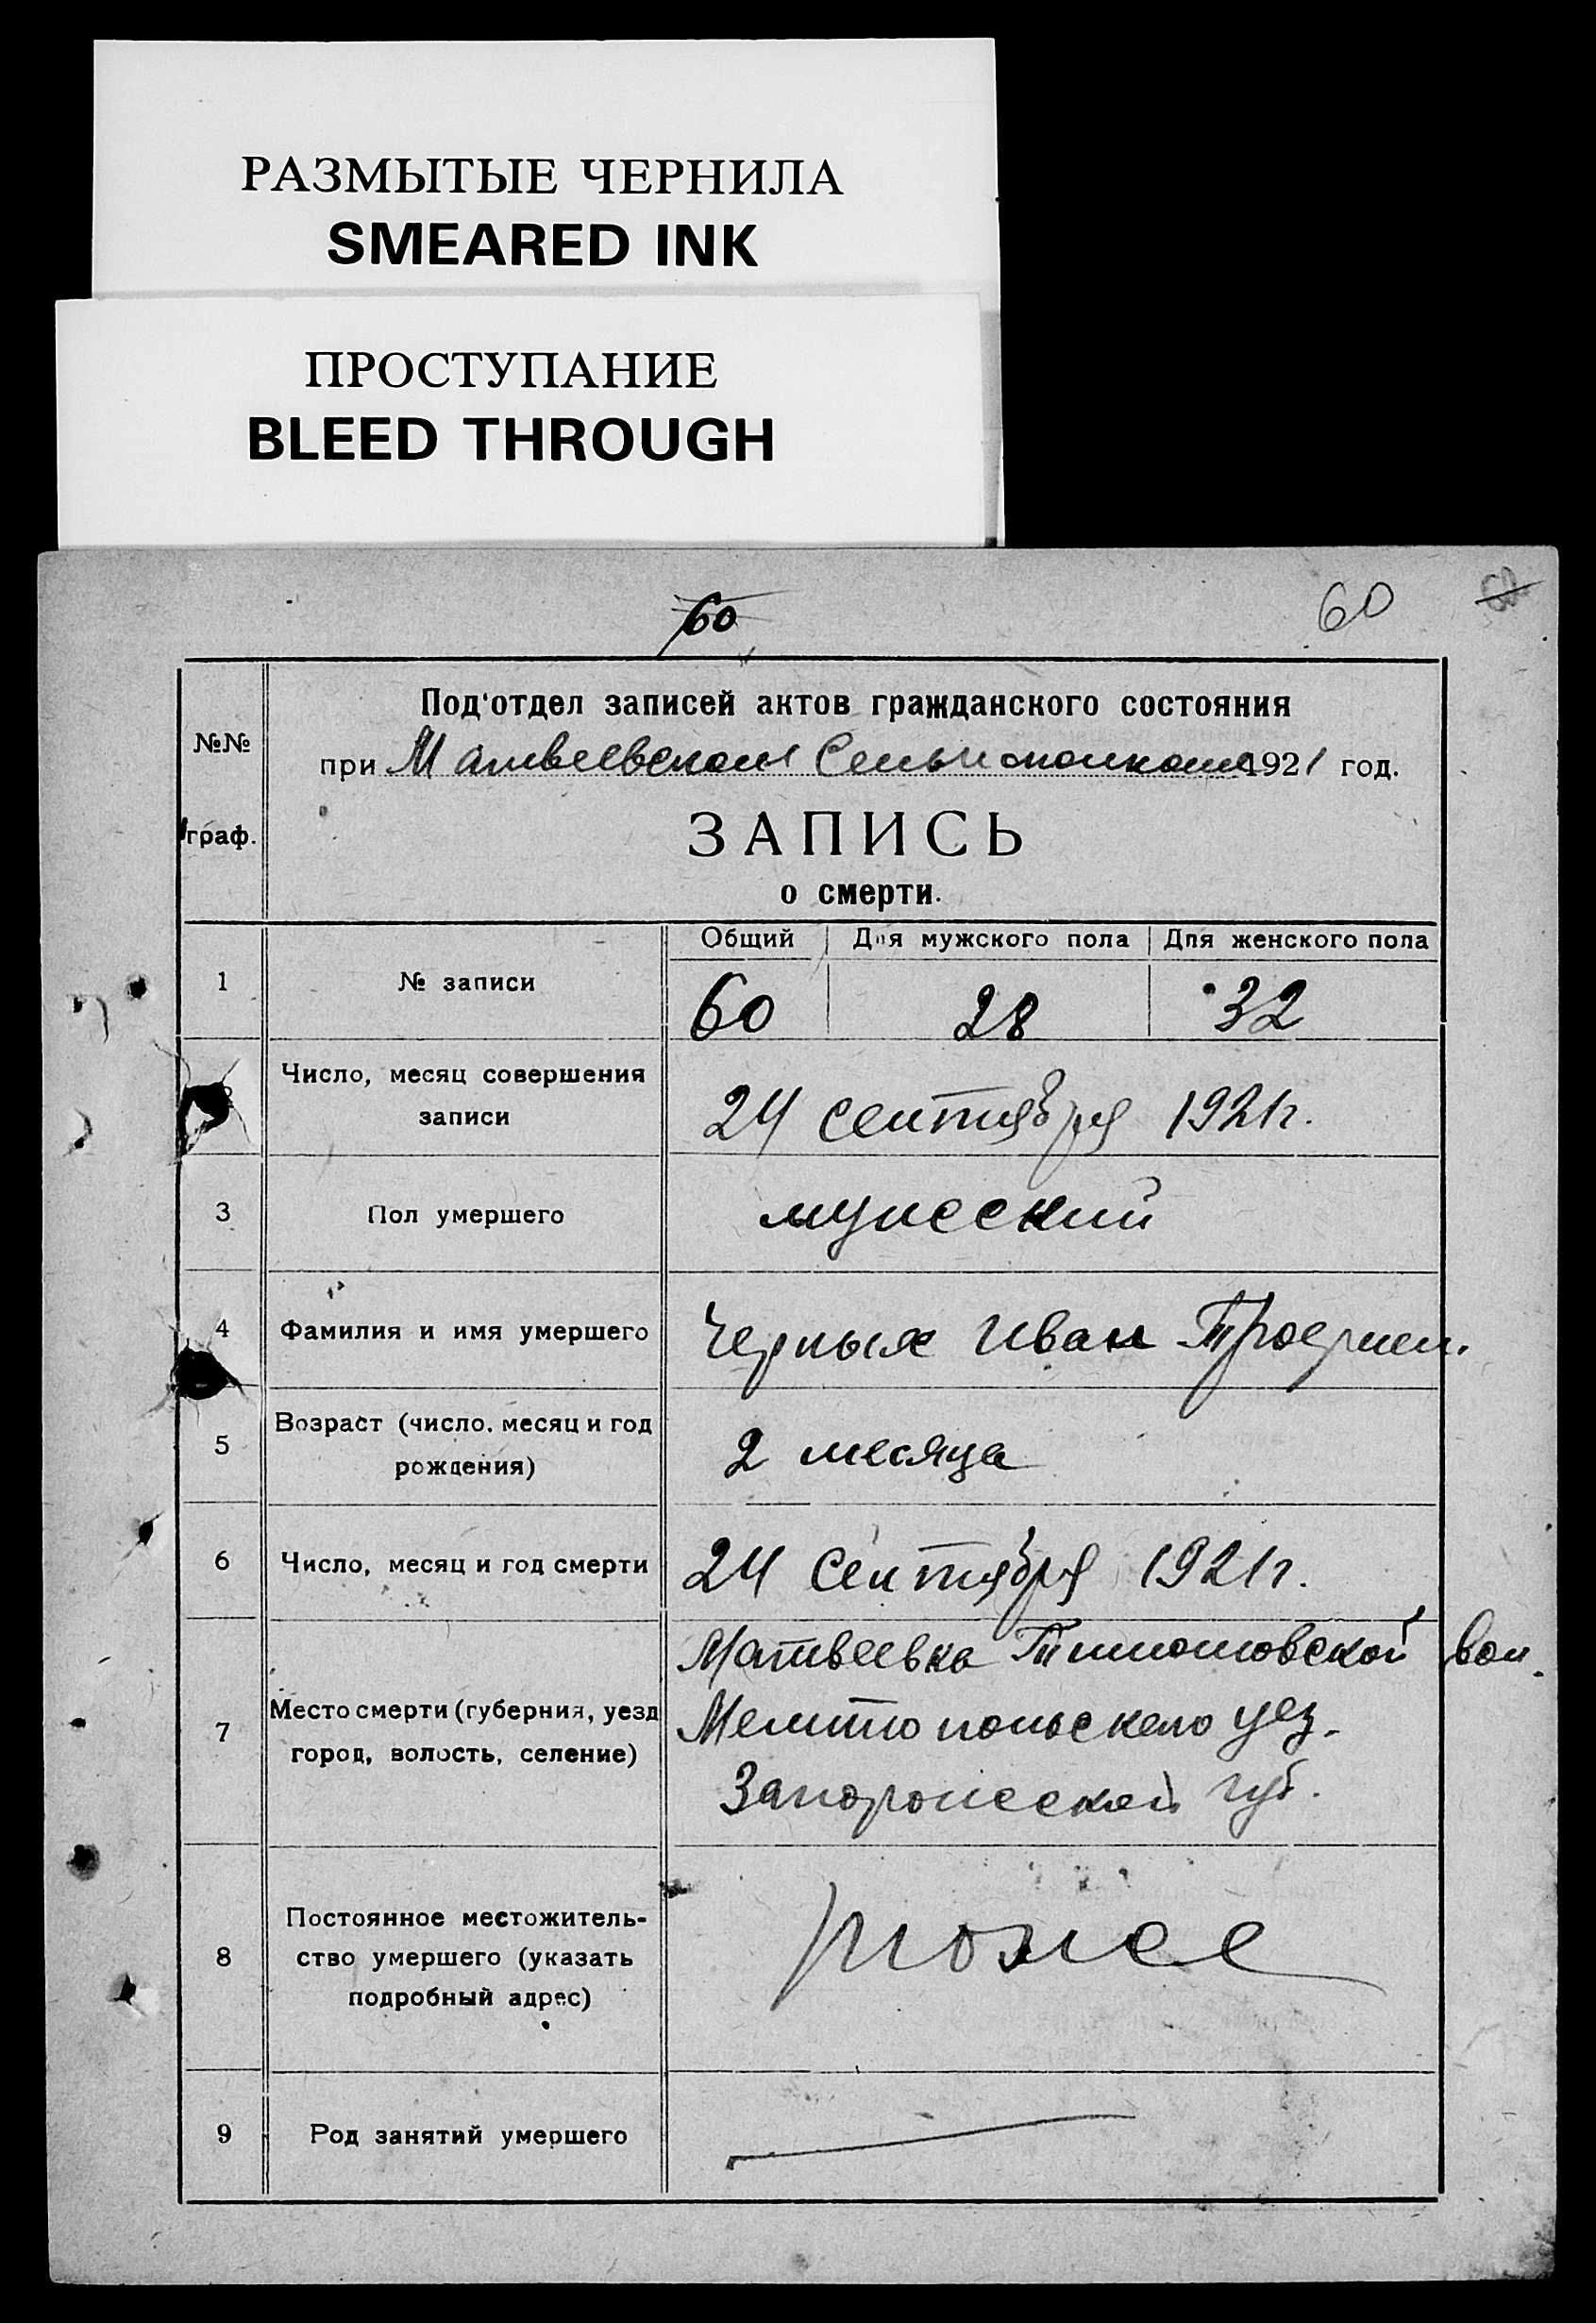 РАЗМЫТЫЕ ЧЕРНИЛА
SMEARED INK
ПРОСТУПАНИЕ
BLEED THROUGH
60
60
60
№№
граф.
Под'отдел записей актов гражданского состояния
при Матвеевском 1921 год.
ЗАПИСЬ
о смерти.
Общий Для мужского пола Для женского пола
1 № записи 60 28 32
2 Число, месяц совершения
записи
24 сентября 1921г.
3 Пол умершего мужеский
4 Фамилия и имя умершего Черных Иван
5 Возраст (число, месяц и год
рождения)
2 месяца
6 Число, месяц и год смерти 24 сентября 1921г.
7 Место смерти (губерния, уезд
город, волость, селение)
Матвеевка Тимошовской вол.
Мелитопольского уез.
Запорожеской губ.
8 Постоянное местожитель-
ство умершего (указать
подробный адрес)
тоже
9 Род занятий умершего